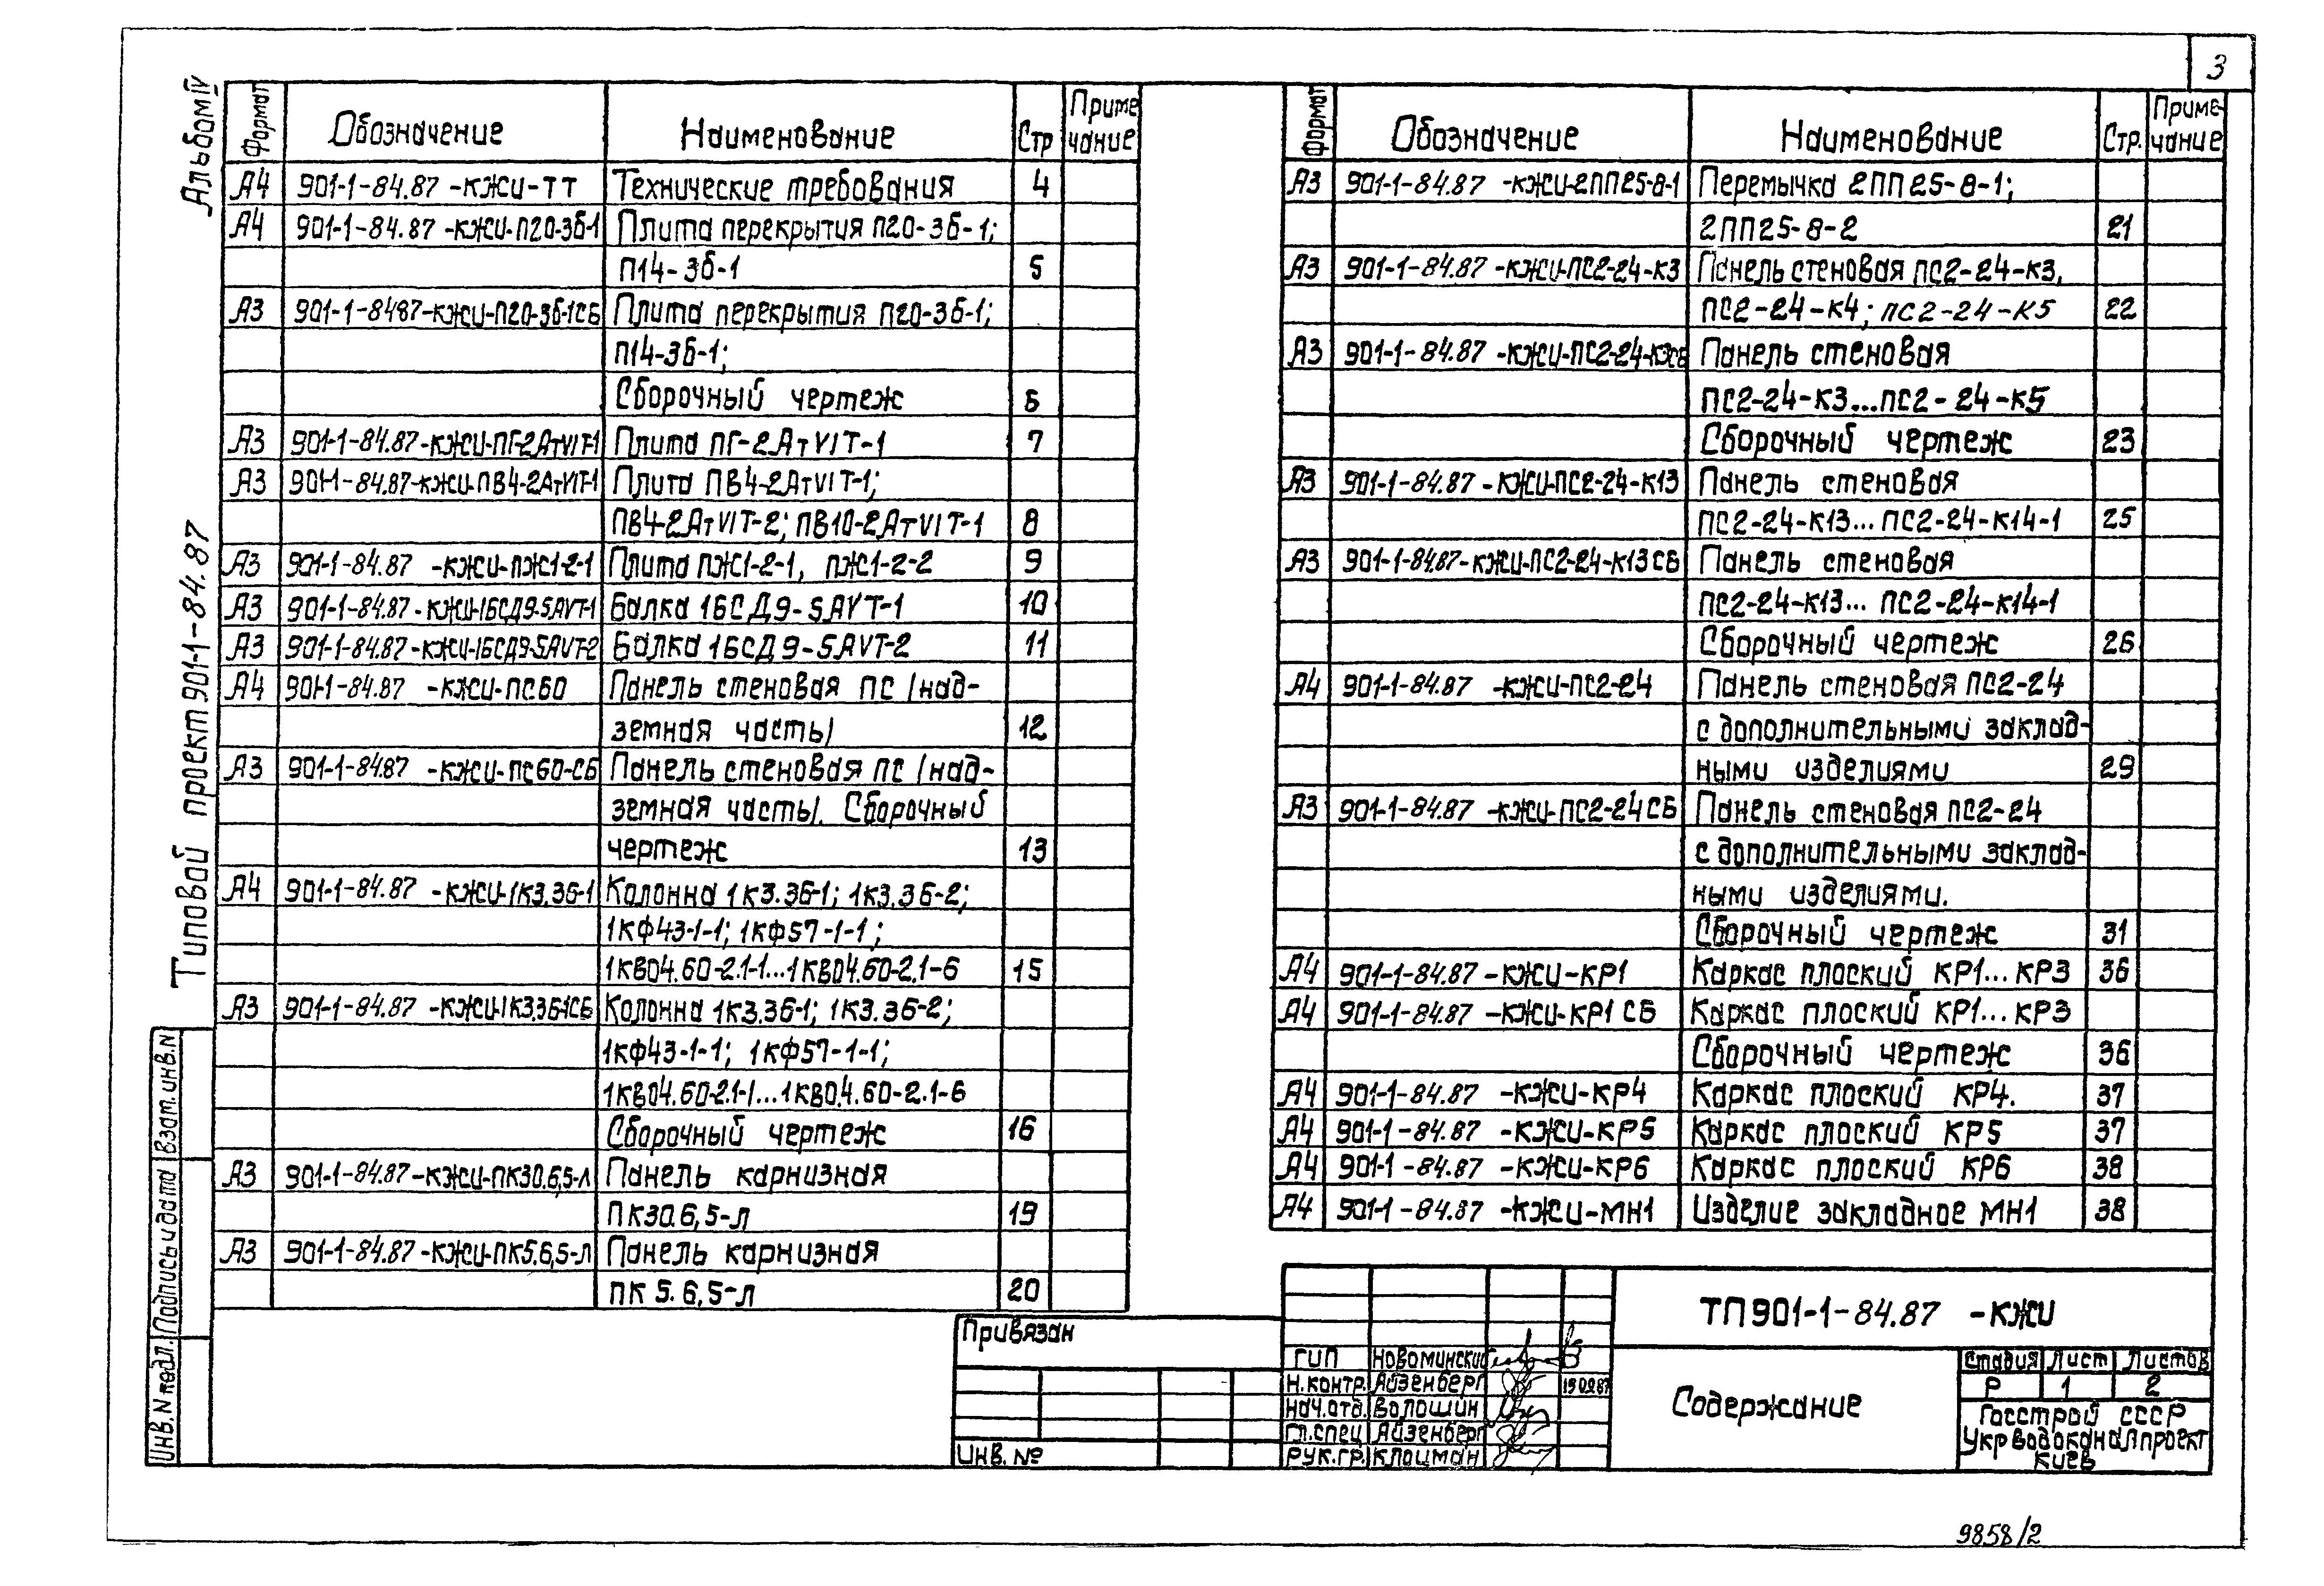 3
Альбом IV
Типовой проект 901-1-84.87
Формат Обозначение Наименование Стр Приме чание
А4 901-1-84.87 -КЖИ-ТТ Технические требования 4
А4 901-1-84.87 -КЖИ-П20-3б-1 Плита перекрытия П20-3б-1;
П14-3б-1 5
А3 901-1-8487-КЖИ-П20-3б-1СБ Плита перекрытия П20-3б-1;
П14-3б-1;
Сборочный чертеж 6
А3 901-1-84.87-КЖИ-ПГ-2АтVIT-1 Плита ПГ-2АтVIT-1 7
А3 901-1-84.87-КЖИ-ПВ4-2АтVIT-1 Плита ПВ4-2АтVIT-1;
ПВ4-2АтVIT-2; ПВ10-2АтVIT-1 8
А3 901-1-84.87 -КЖИ-ПЖ1-2-1 Плита ПЖ1-2-1, ПЖ1-2-2 9
А3 901-1-84.87-КЖИ-1БСД9-5АVT-1 Балка 1БСД9-5АVT-1 10
А3 901-1-84.87-КЖИ-1БСД9-5АVT-2 Балка 1БСД9-5АVT-2 11
А4 901-1-84.87 -КЖИ-ПС60 Панель стеновая ПС /над-
земная часть/ 12
А3 901-1-84.87 -КЖИ-ПС60-СБ Панель стеновая ПС /над-
земная часть/. Сборочный
чертеж 13
А4 901-1-84.87 -КЖИ-1К3.36-1 Колонна 1К3.36-1; 1К3.36-2;
1КФ43-1-1; 1КФ57-1-1;
1КВ04.60-2.1-1...1КВ04.60-2.1-6 15
А3 901-1-84.87 -КЖИ-1К3.36-1СБ Колонна 1К3.36-1; 1К3.36-2;
1КФ43-1-1; 1КФ57-1-1;
1КВ04.60-2.1-1...1КВ0.4.60-2.1-6
Сборочный чертеж 16
А3 901-1-84.87-КЖИ-ПК30.6,5-Л Панель карнизная
ПК30.6,5-Л 19
А3 901-1-84.87-КЖИ-ПК5.6,5-Л Панель карнизная
ПК 5.6,5-Л 20
Формат Обозначение Наименование Стр. Приме- чание
А3 901-1-84.87 -КЖИ-2ПП25-8-1 Перемычка 2ПП25-8-1;
2ПП25-8-2 21
А3 901-1-84.87 -КЖИ-ПС2-24-К3 Панель стеновая ПС2-24-К3,
ПС2-24-К4; ПС2-24-К5 22
А3 901-1-84.87 -КЖИ-ПС2-24-К3СБ Панель стеновая
ПС2-24-К3...ПС2-24-К5
Сборочный чертеж 23
А3 901-1-84.87 -КЖИ-ПС2-24-К13 Панель стеновая
ПС2-24-К13...ПС2-24-К14-1 25
А3 901-1-84.87-КЖИ-ПС2-24-К13СБ Панель стеновая
ПС2-24-К13... ПС2-24-К14-1
Сборочный чертеж 26
А4 901-1-84.87 -КЖИ-ПС2-24 Панель стеновая ПС2-24
с дополнительными заклад-
ными изделиями 29
А3 901-1-84.87 -КЖИ-ПС2-24СБ Панель стеновая ПС2-24
с дополнительными заклад-
ными изделиями.
Сборочный чертеж 31
А4 901-1-84.87 -КЖИ-КР1 Каркас плоский КР1...КР3 36
А4 901-1-84.87 -КЖИ-КР1 СБ Каркас плоский КР1...КР3
Сборочный чертеж 36
А4 901-1-84.87 -КЖИ-КР4 Каркас плоский КР4. 37
А4 901-1-84.87 -КЖИ-КР5 Каркас плоский КР5 37
А4 901-1-84.87 -КЖИ-КР6 Каркас плоский КР6 38
А4 901-1-84.87 -КЖИ-МН1 Изделие закладное МН1 38
Взам. инв. N
Подпись и дата
Инв. N подл.
Привязан
Инв. №
ГИП Новоминский
Н.контр. Айзенберг
Нач.отд. Волошин
Гл.спец Айзенберг
Рук.гр. Клоцман
ТП901-1-84.87 -КЖИ
Содержание
Стадия Лист Листов
Р 1 2
Госстрой СССР
Укрводоканалпроект
Киев
9858/2